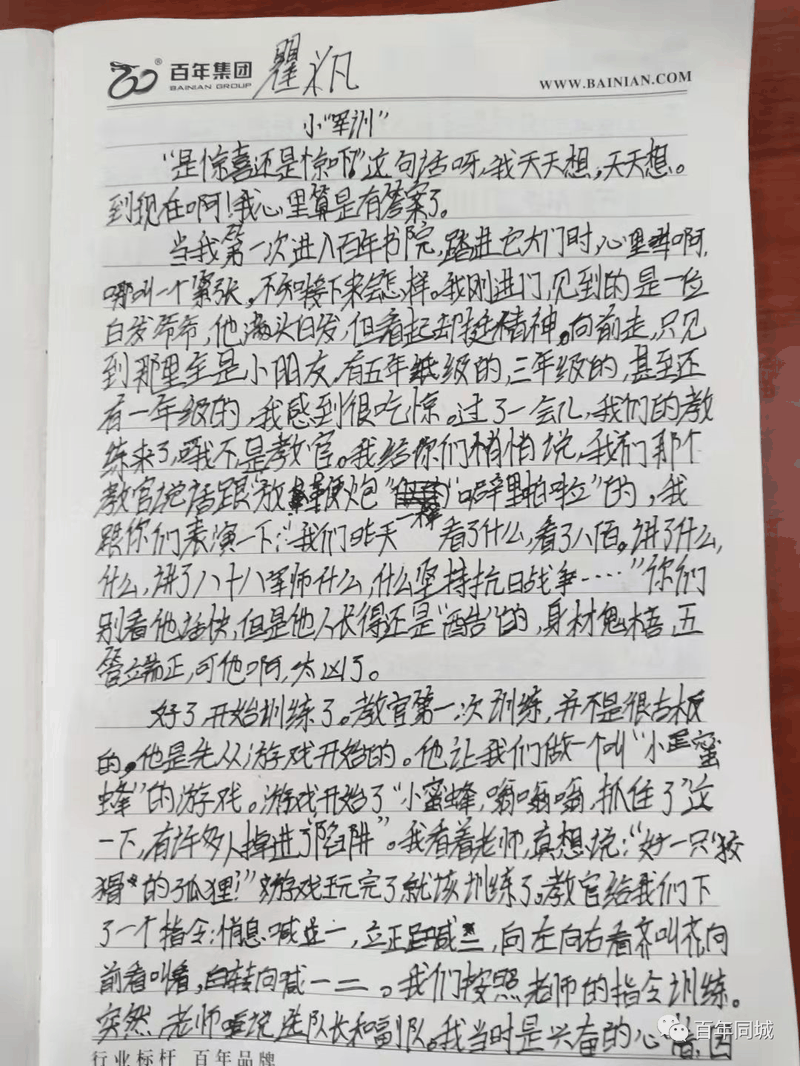 百年集团
BAINIAN GROUP
瞿义凡
WWW.BAINIAN.COM
小"军训"
"是惊喜还是惊吓?"这句话呀,我天天想,天天想。
到现在啊!我心里算是有答案了。
当我第一次进入百年书院,踏进它大门时,心里啊,
哪叫一个紧张,不知接下来会怎样。我刚进门,见到的是一位
白发爷爷,他满头白发,但看起却挺精神。向前走,只见
到那里全是小朋友,有五年级的,三年级的,甚至还
有一年级的,我感到很吃惊。过了一会儿,我们的教
练来了,哦不,是教官。我给你们悄悄说,我们那个
教官说话跟"放鞭炮"一样"噼里啪啦"的,我
跟你们表演一下:"我们昨天看了什么,看了八佰。讲了什么,
什么,讲了八十八军师什么,什么坚持抗日战争……"你们
别看他话快,但是他人长得还是"酷"的,身材魁梧,五
官端正,可他啊,太凶了。
好了,开始训练了。教官第一次训练,并不是很古板
的。他是先从游戏开始的。他让我们做一个叫"小蜜
蜂"的游戏。游戏开始了"小蜜蜂,嗡嗡嗡,抓住了"这
一下,有许多人掉进了"陷阱"。我看着老师,真想说:"好一只狡
猾的狐狸!"游戏玩完了就该训练了。教官给我们下
了一个指令:稍息喊一,立正喊二,向左向右看齐叫齐,向
前看叫看,转向喊一二。我们按照老师的指令训练。
突然,老师说选队长和副队。我当时是兴奋的心情,因
行业标杆 百年品牌
百年同城